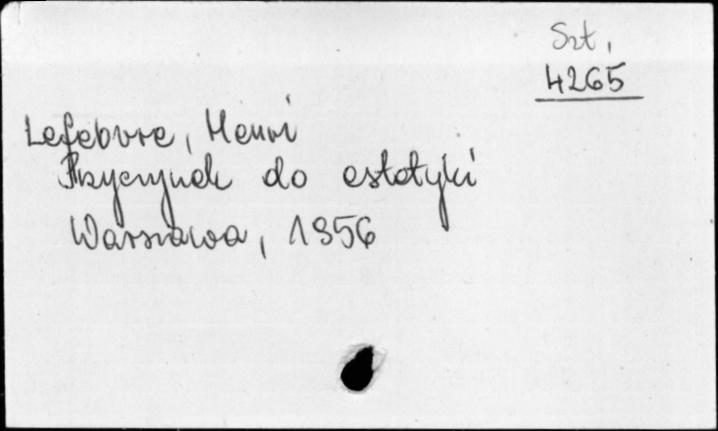 Szt.
4265
Lefebvre, Henri
Przyczynek do estetyki
Warszawa, 1956